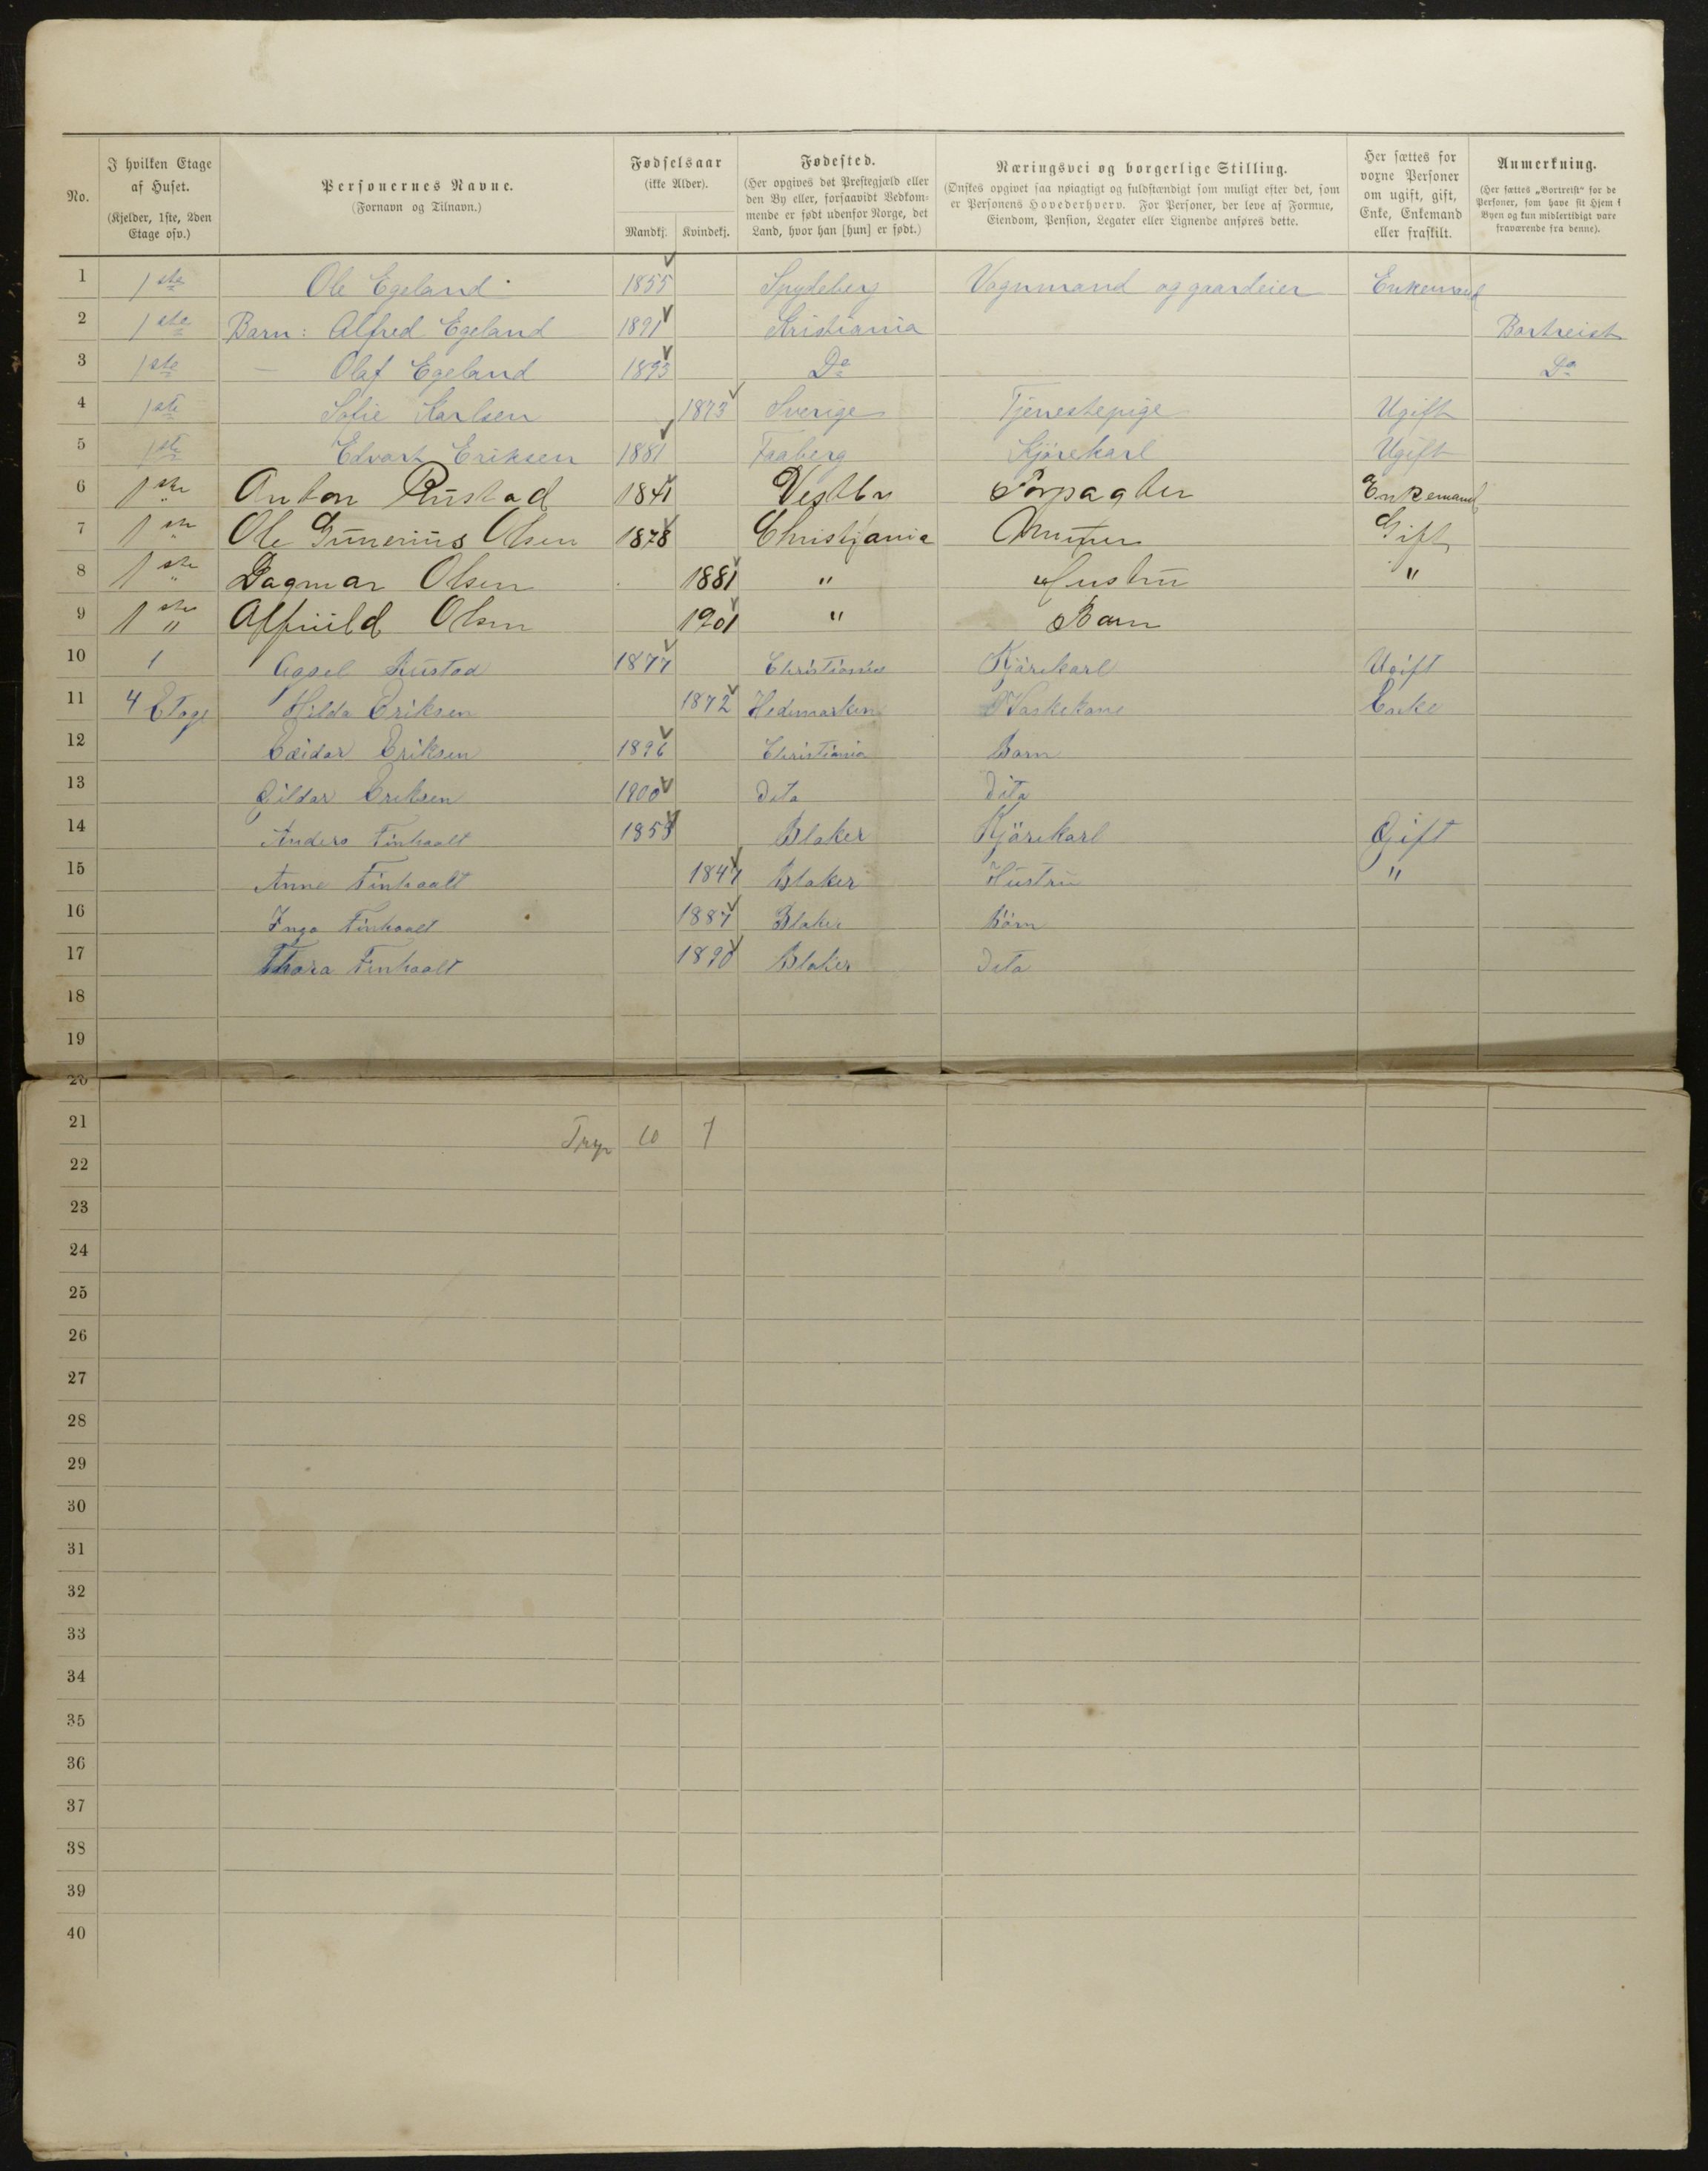 No.
I hvilken Etage af Huset. (Kjelder, 1ste, 2den Etage osv.)
Personernes Navne. (Fornavn og Tilnavn.)
Fødselsaar (ikke Alder). Mandkj. Kvindekj.
Fødested. (Her opgives det Prestegjæld eller den By eller, forsaavidt Vedkommende er født udenfor Norge, det Land, hvor han [hun] er født.)
Næringsvei og borgerlige Stilling. (Ønskes opgivet saa nøiagtigt og fuldstændigt som muligt efter det, som er Personens Hovederhverv. For Personer, der leve af Formue, Eiendom, Pension, Legater eller Lignende anføres dette.)
Her sættes for voxne Personer om ugift, gift, Enke, Enkemand eller fraskilt.
Anmerkning. (Her sættes „Bortreist“ for de Personer, som have sit Hjem i Byen og kun midlertidigt vare fraværende fra denne).
1 1ste Ole Egeland 1855 Spydeberg Vognmand og gaardeier Enkemand
2 1ste Barn: Alfred Egeland 1891 Kristiania Bortreist
3 1ste — Olaf Egeland 1893 Do Do
4 1ste Sofie Karlsen 1873 Sverige Tjenestepige Ugift
5 1ste Edvart Eriksen 1881 Faaberg Kjørekarl Ugift
6 1ste Anton Rustad 1841 Vestby Forpagter Enkemand
7 1ste Ole Gunerius Olsen 1878 Christiania Murer Gift
8 1ste Dagmar Olsen 1881 " Hustru "
9 1ste Olsen 1901 " Barn
10 1 Rustad 1877 Christiania Kjörekarl Ugift
11 4 Etage Hilda Eriksen 1872 Hedemarken Vaskekone Enke
12 Eriksen 1896 Christiania Barn
13 Eriksen 1900 Dito Dito
14 Anders Finhaalt 1858 Blaker Kjörekarl Gift
15 Anne Finhaalt 1847 Blaker Hustru "
16 Inga Finhaalt 1887 Blaker Börn
17 Thora Finhaalt 1890 Blaker Dito
18
19
20
21 10 7
22
23
24
25
26
27
28
29
30
31
32
33
34
35
36
37
38
39
40